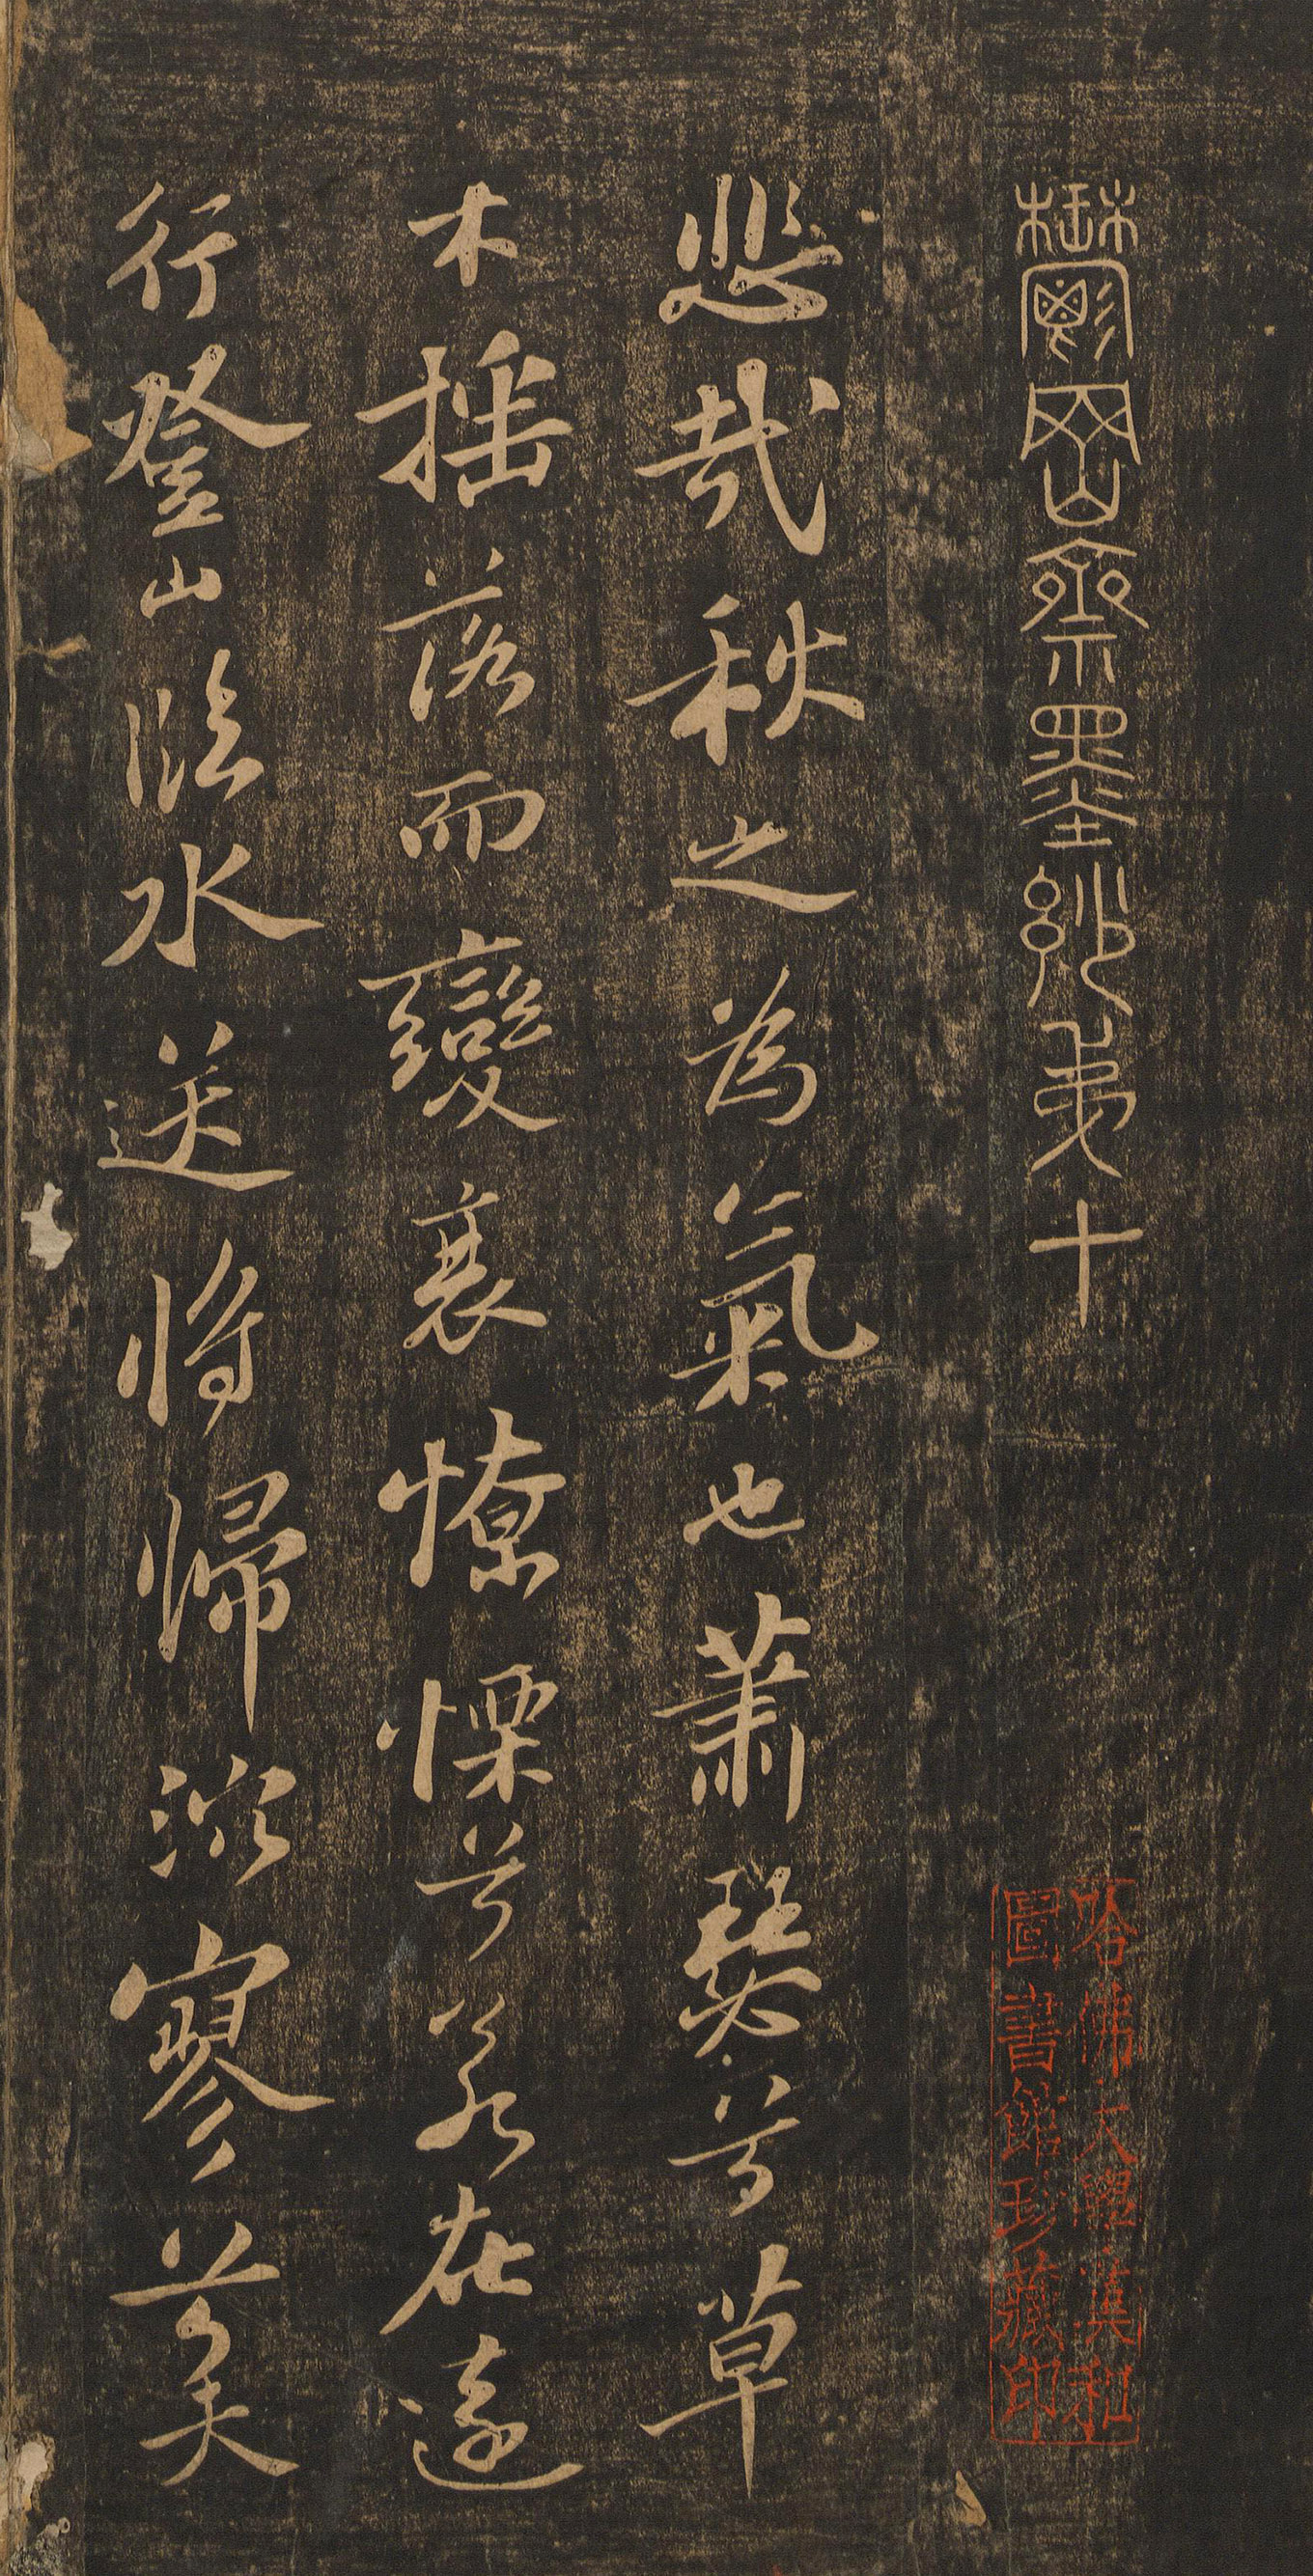 鬱岡齋墨妙弟十
哈佛大學漢和
圖書館珍藏印
悲哉秋之為氣也蕭瑟兮草
木搖落而變衰憭慄兮若在遠
行登山臨水送將歸泬寥兮天